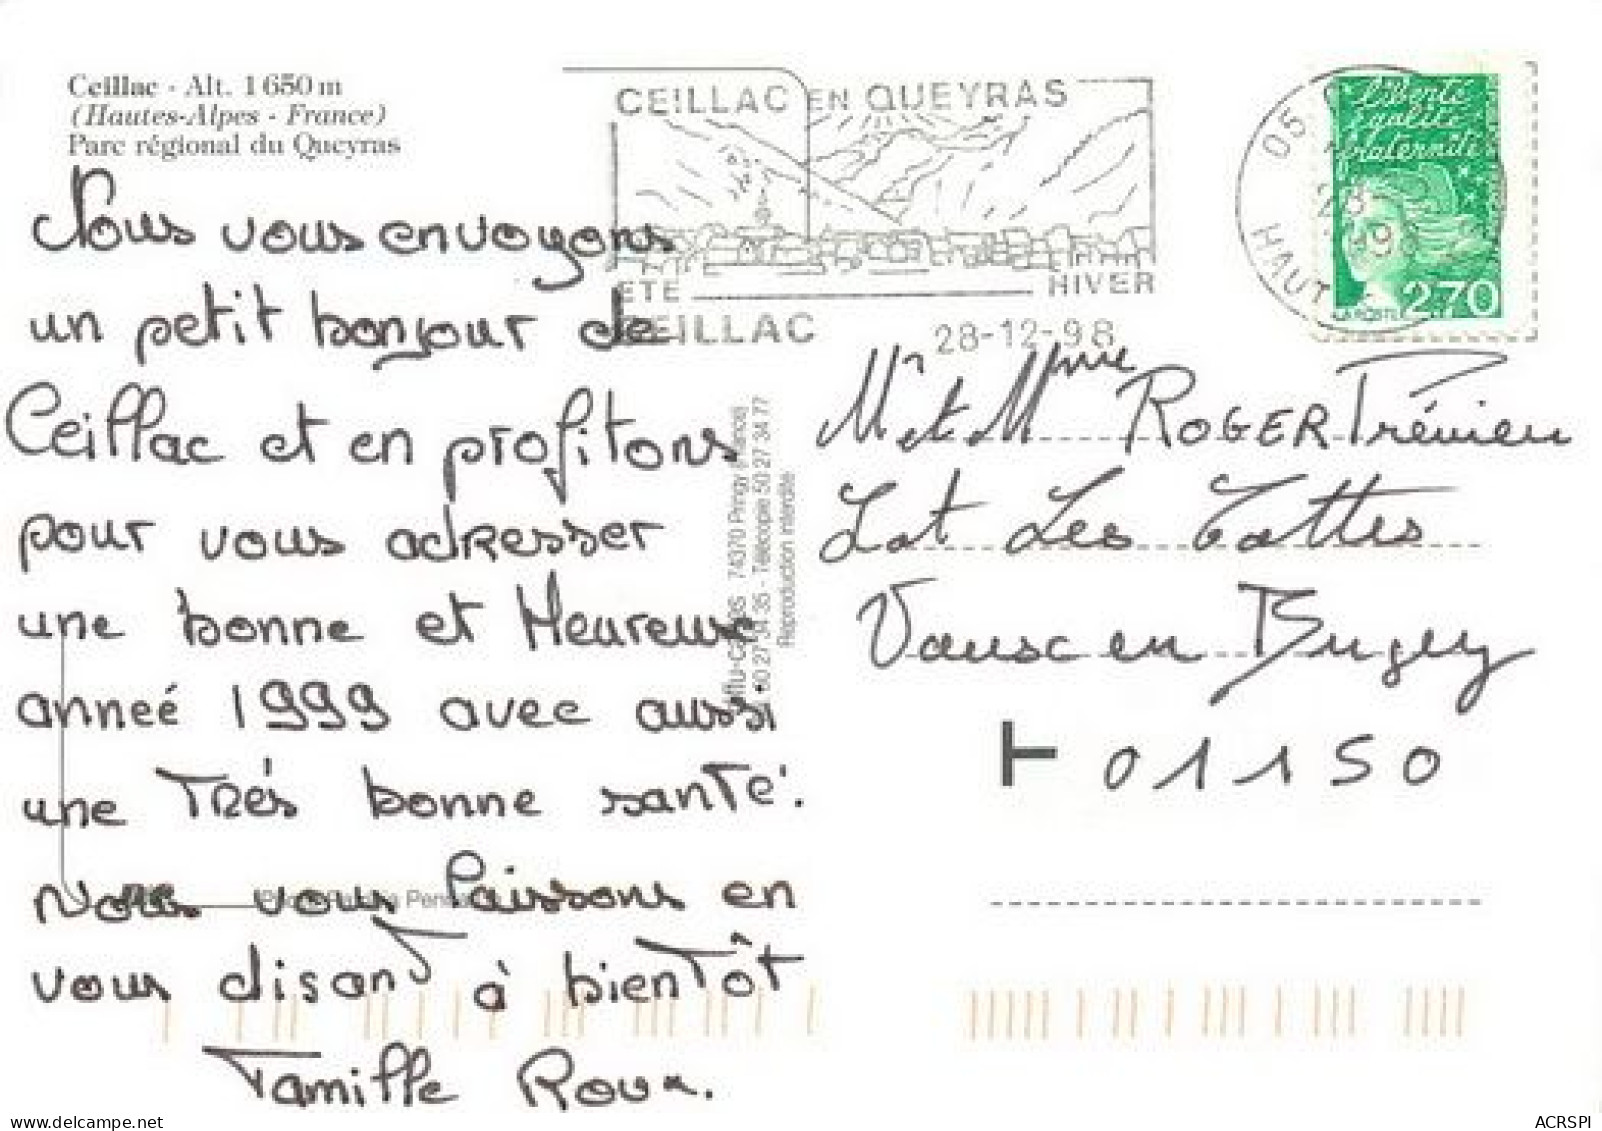 Ceillac - Alt. 1650 m
(Hautes-Alpes - France)
Parc régional du Queyras
Nous vous envoyons
un petit bonjour de
Ceillac et en profitons
pour vous adresser
une bonne et Heureuse
anneé 1999 avec aussi
une Très bonne santé.
Nous vous laissons en
vous disant à bientôt
Famille Roux.
CEILLAC EN QUEYRAS
ETE HIVER
CEILLAC 28-12-98
05
HAUT
28
98
liberté
égalité
fraternité
LA POSTE 2,70
74370 Pringy (France)
50 27 34 35 - Télécopie 50 27 34 77
Reproduction interdite
Mr et Mme ROGER
Lot Les
en Bugey
T 01150
ACRSPI